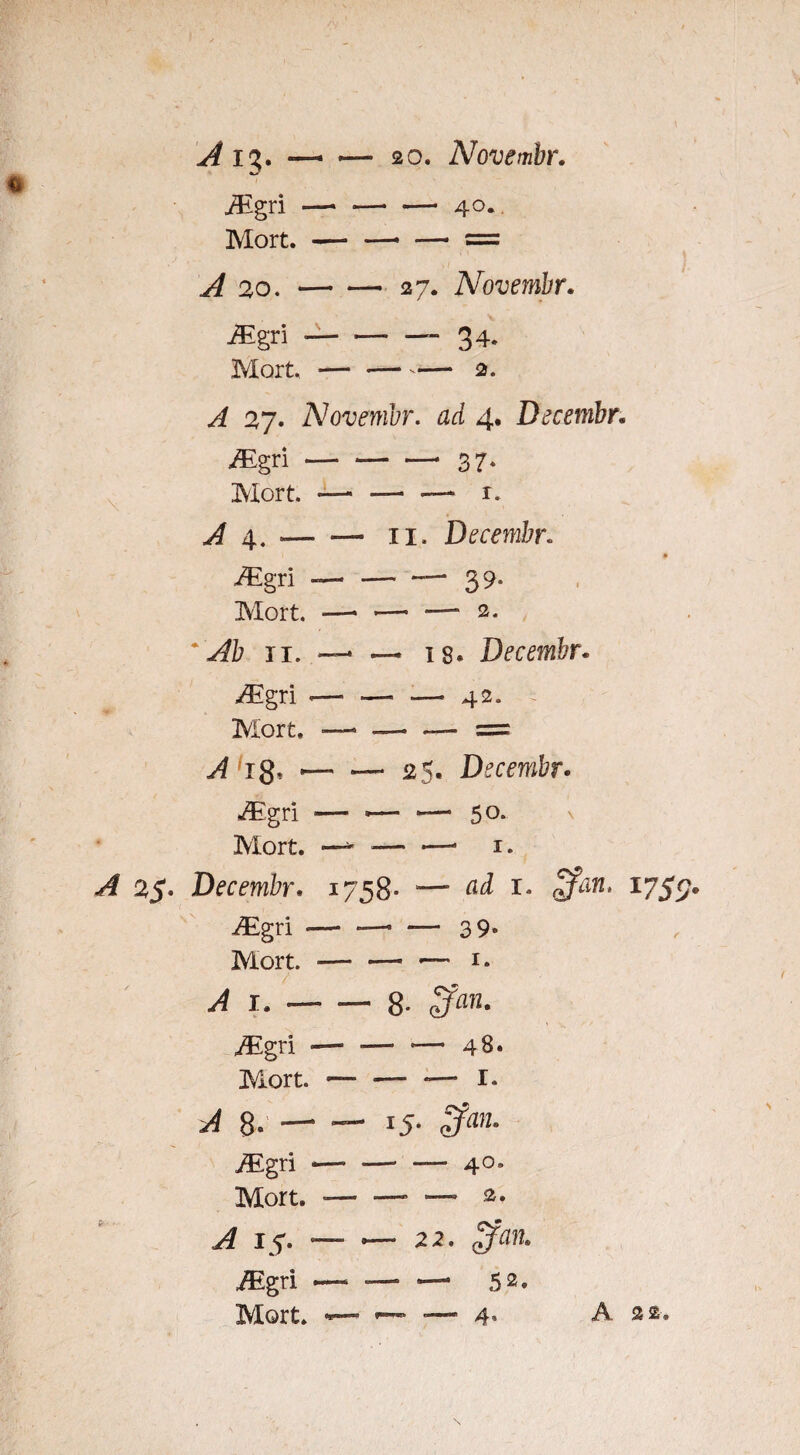 A 13. — — 20. Novembr.
Ægri — — — 40.
Mort. — — — =
A 20. — — 27. Novembr.
Ægri — — — 34.
Mort. — — — 2.
A 27. Novembr. ad 4. Decembr.
Ægri — — — 37.
Mort. — — — 1.
A 4. — — 11. Decembr.
Ægri — — — 39.
Mort. — — — 2.
Ab 11. — — 18. Decembr.
Ægri — — — 42.
Mort. — — — =
A 18. — — 25. Decembr.
Ægri — — — 50.
Mort. — — — 1.
A 25. Decembr. 1758. — ad 1. Jan. 1759.
Ægri — — — 39.
Mort. — — — 1.
A 1. — — 8. Jan.
Ægri — — — 48.
Mort. — — — 1.
A 8. — — 15. Jan.
Ægri — — — 40.
Mort. — — — 2.
A 15. — — 22. Jan.
Ægri — — — 52.
Mort. — — — 4.
A 22.